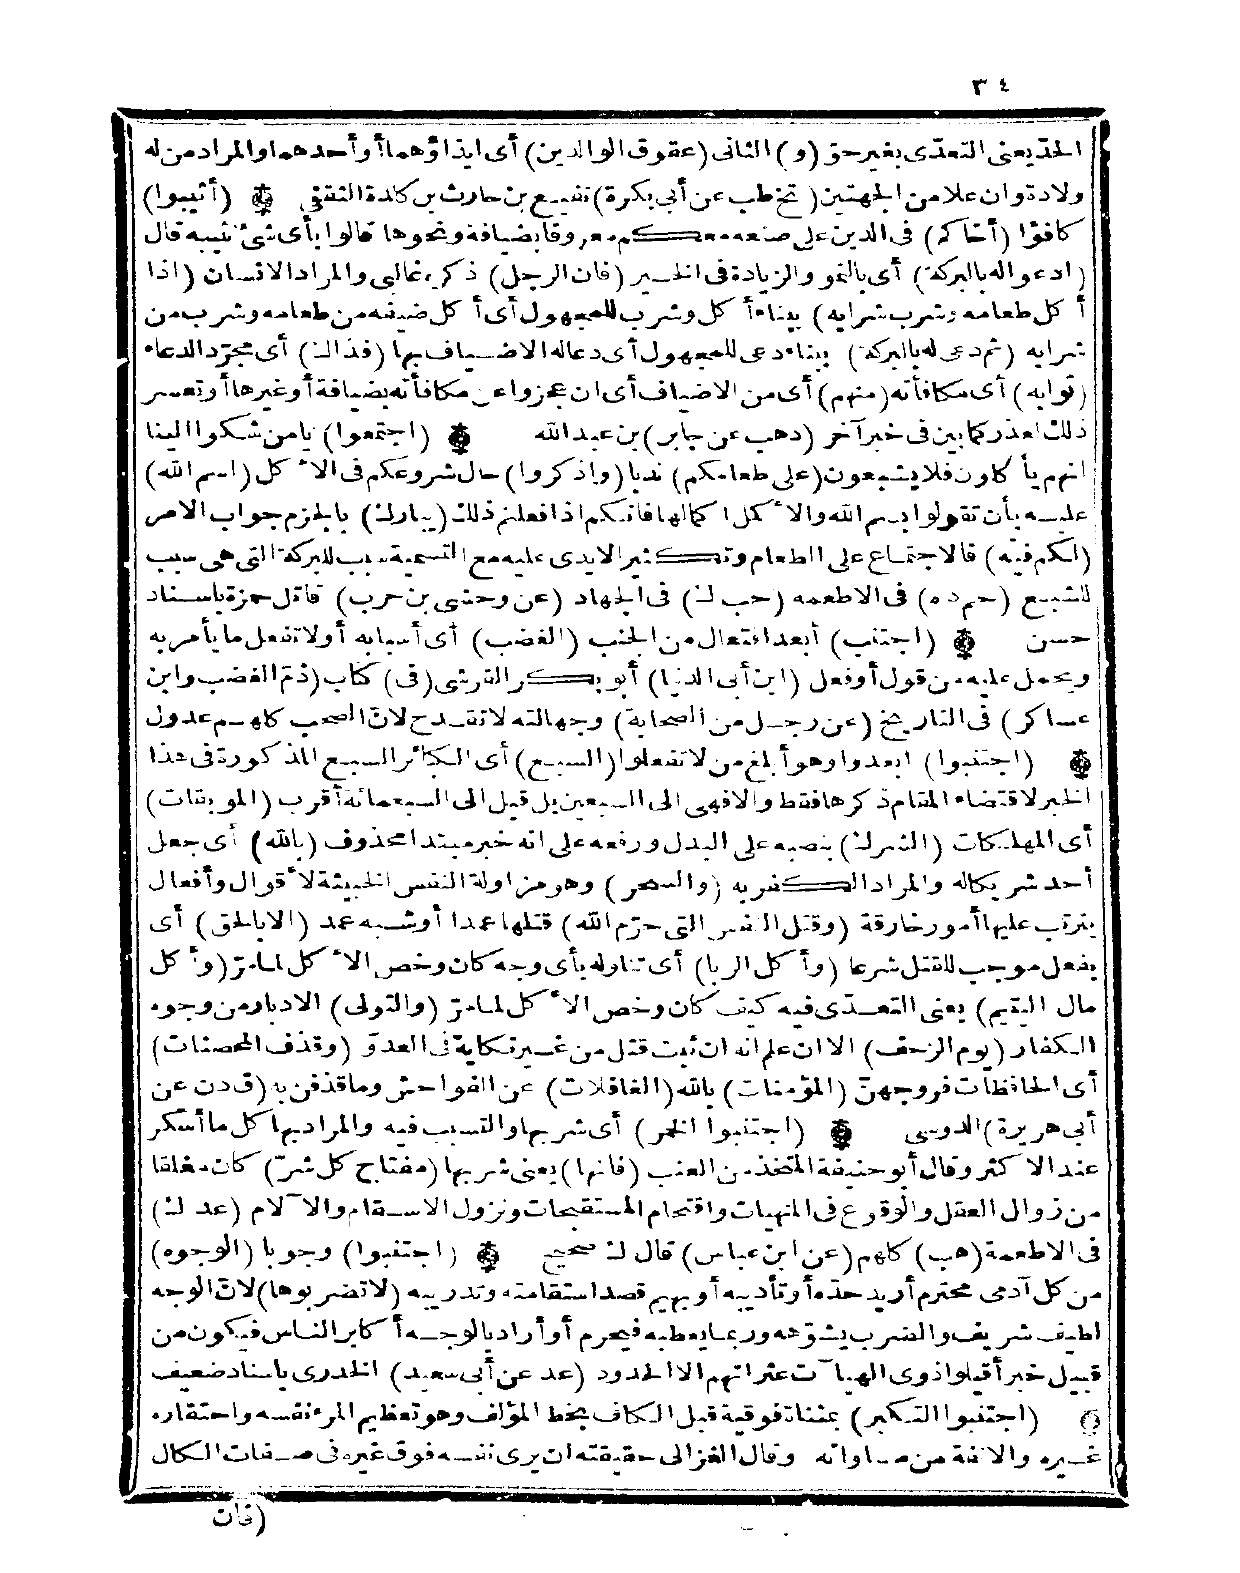 ٣٤
الحد يعنى التعدى بغير حق (و) الثانى (عقوق الوالدين) أى ايذاؤهما أو أحدهما والمراد من له
ولادة وان علا من الجهتين (تخ طب عن أبى بكرة) نفيع بن حارث بن كلدة الثقفى ۞ (أثيبوا)
كافؤا (أخاكم) فى الدين على صنعه معكم معروفا بضيافة ونحوها قالوا بأى شئ نثيبه قال
(ادعوا له بالبركة) أى بالنمو والزيادة فى الخير (فان الرجل) ذكره غالبى والمراد الانسان (اذا
أكل طعامه وشرب شرابه) ببناء أكل وشرب للمجهول أى أكل ضيفه من طعامه وشرب من
شرابه (ثم دعى له بالبركة) ببناء دعى للمجهول أى دعا له الاضياف بها (فذاك) أى مجرد الدعاء
(ثوابه) أى مكافأته (منهم) أى من الاضياف أى ان عجزوا عن مكافأته بضيافة أو غيرها أو تعسر
ذلك لعذر كما بين فى خبر آخر (د هب عن جابر) بن عبد الله ۞ (اجتمعوا) يا من شكوا الينا
انهم يأكلون فلا يشبعون (على طعامكم) ندبا (واذكروا) حال شروعكم فى الأكل (اسم الله)
عليه بأن تقولوا بسم الله والأكمل اكمالها فانكم اذا فعلتم ذلك (يبارك) بالجزم جواب الامر
(لكم فيه) فالاجتماع على الطعام وتكثير الايدى عليه مع التسمية سبب للبركة التى هى سبب
للشبع (حم د ه) فى الاطعمه (حب ك) فى الجهاد (عن وحشى بن حرب) قاتل حمزة باسناد
حسن ۞ (اجتنب) أبعد افتعال من الجنب (الغضب) أى أسبابه أو لا تفعل ما يأمر به
ويحمل عليه من قول أو فعل (ابن أبى الدنيا) أبو بكر القرشى (فى) كتاب (ذم الغضب وابن
عساكر) فى التاريخ (عن رجل من الصحابة) وجهالته لا تقدح لان الصحب كلهم عدول
۞ (اجتنبوا) ابعدوا وهو أبلغ من لا تفعلوا (السبع) أى الكبائر السبع المذكورة فى هذا
الخبر لاقتضاء المقام ذكرها فقط والا فهى الى السبعين بل قيل الى السبعمائة أقرب (الموبقات)
أى المهلكات (الشرك) بنصبه على البدل ورفعه على انه خبر مبتدا محذوف (بالله) أى جعل
أحد شريكا له والمراد الكفر به (والسحر) وهو مزاولة النفس الخبيثة لأقوال وأفعال
يترتب عليها أمور خارقة (وقتل النفس التى حرم الله) قتلها عمدا أو شبه عمد (الا بالحق) أى
بفعل موجب للقتل شرعا (وأكل الربا) أى تناوله بأى وجه كان وخص الأكل لما مر (وأكل
مال اليتيم) يعنى التعدى فيه كيف كان وخص الأكل لما مر (والتولى) الادبار من وجوه
الكفار (يوم الزحف) الا ان علم انه ان ثبت قتل من غير نكاية فى العدو (وقذف المحصنات)
أى الحافظات فروجهن (المؤمنات) بالله (الغافلات) عن الفواحش وما قذفن به (ق د ن عن
أبى هريرة) الدوسى ۞ (اجتنبوا الخمر) أى شربها والتسبب فيه والمراد بها كل ما أسكر
عند الاكثر وقال أبو حنيفة المتخذ من العنب (فانها) يعنى شربها (مفتاح كل شر) كان مغلقا
من زوال العقل والوقوع فى المنهيات واقتحام المستقبحات ونزول الاسقام والآلام (عد ك)
فى الاطعمة (هب) كلهم (عن ابن عباس) قال ك صحيح ۞ (اجتنبوا) وجوبا (الوجوه)
من كل آدمى محترم أريد حده أو تأديبه أو بهيم قصد استقامته وتدريبه (لا تضربوها) لان الوجه
لطيف شريف والضرب يشوهه وربما يعطبه فيحرم أو أراد بالوجه أكابر الناس فيكون من
قبيل خبر أقيلوا ذوى الهيآت عثراتهم الا الحدود (عد عن أبى سعيد) الخدرى باسناد ضعيف
۞ (اجتنبوا التكبر) بمثناة فوقية قبل الكاف بخط المؤلف وهو تعظيم المرء نفسه واحتقاره
غيره والانفة من مساواته وقال الغزالى حقيقته ان يرى نفسه فوق غيره فى صفات الكمال
(فان